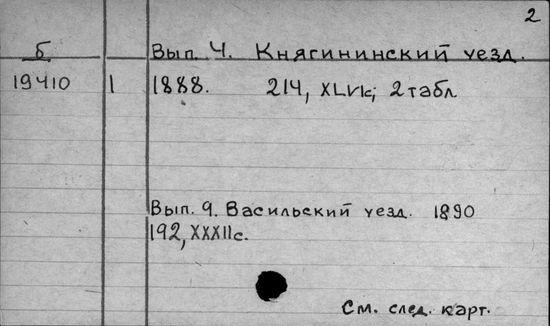 2
б Вып. 4. Княгининский уезд.
19410 1 1888. 214, XLVIс; 2 табл
Вып. 9. Васильский уезд. 1890
192, XXXIIс.
См. след. карт.